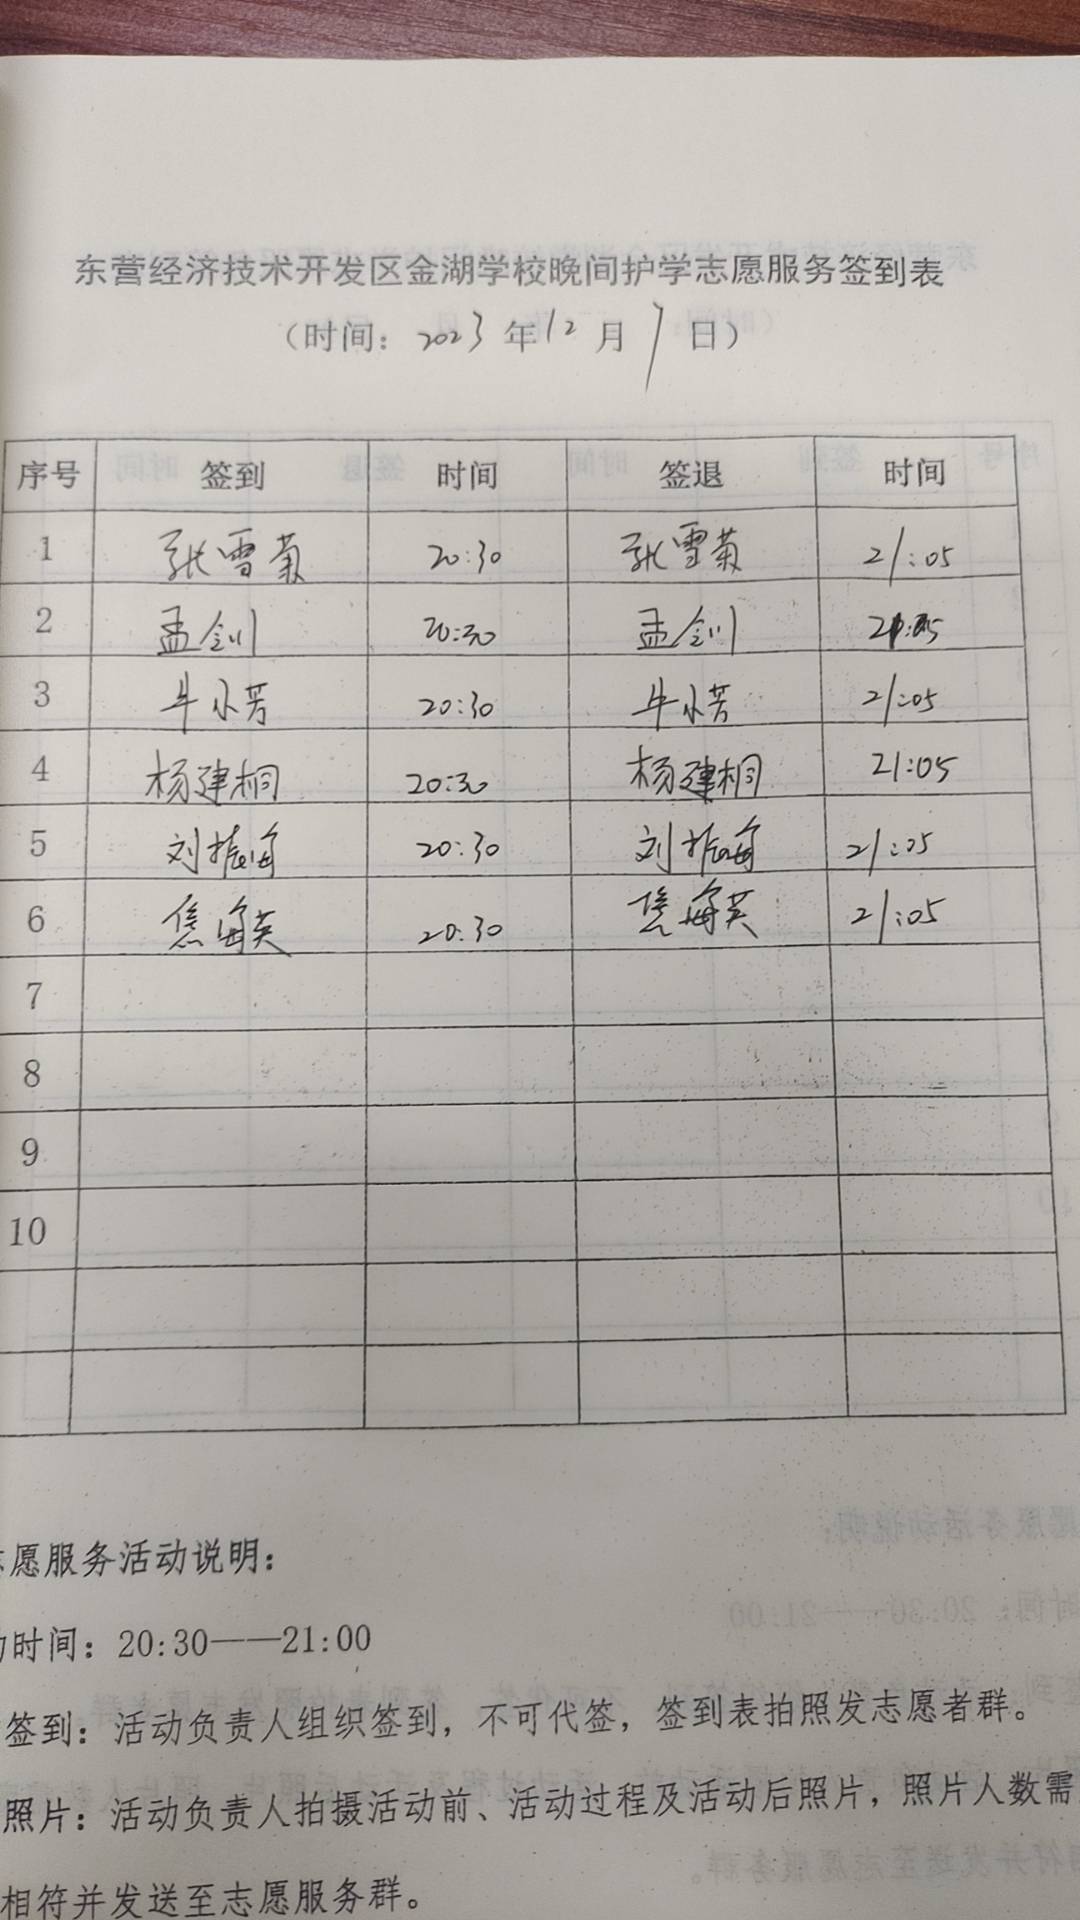 东营经济技术开发区金湖学校晚间护学志愿服务签到表
（时间：2023年12月7日）
序号 签到 时间 签退 时间
1 张雪菊 20:30 张雪菊 21:05
2 孟剑 20:30 孟剑 21:05
3 牛小芳 20:30 牛小芳 21:05
4 杨建桐 20:30 杨建桐 21:05
5 刘振海 20:30 刘振海 21:05
6 焦海英 20:30 焦海英 21:05
7
8
9
10
愿服务活动说明：
时间：20:30——21:00
签到：活动负责人组织签到，不可代签，签到表拍照发志愿者群。
照片：活动负责人拍摄活动前、活动过程及活动后照片，照片人数需
相符并发送至志愿服务群。